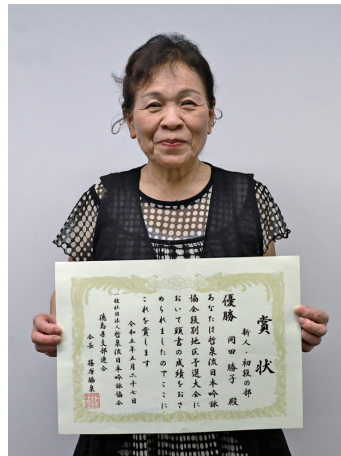 賞状
新人・初段の部
優勝 岡田勝子 殿
あなたは哲泉流日本吟詠
協会段別地区予選大会に
おいて頭書の成績をおさ
められましたのでここに
これを賞します
令和五年五月二十七日
一般社団法人哲泉流日本吟詠協会
徳島県支部連合
会長 篠原脇泉